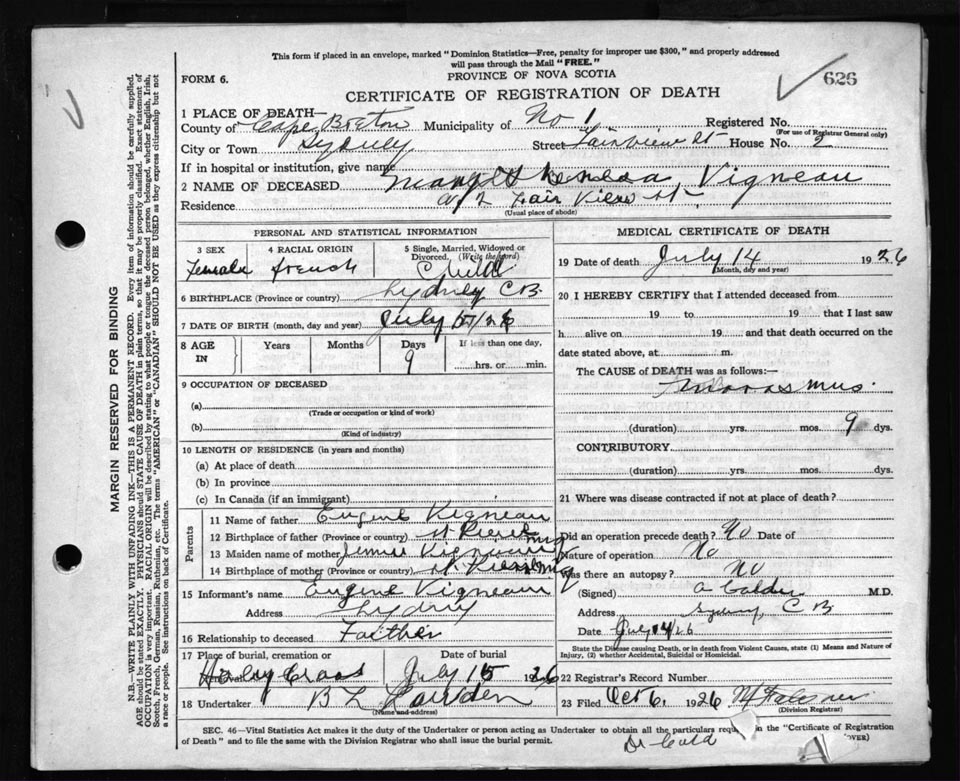 This form if placed in an envelope, marked "Dominion Statistics—Free, penalty for improper use $300," and properly addressed
will pass through the Mail "FREE."
FORM 6.
PROVINCE OF NOVA SCOTIA
626
CERTIFICATE OF REGISTRATION OF DEATH
1 PLACE OF DEATH—
County of Cape Breton Municipality of No 1 Registered No.
(For use of Registrar General only)
City or Town Sydney Street Fairview St House No. 2
If in hospital or institution, give name
2 NAME OF DECEASED Vigneau
Residence No 2 Fair View St
(Usual place of abode)
PERSONAL AND STATISTICAL INFORMATION
3 SEX 4 RACIAL ORIGIN 5 Single, Married, Widowed or
Divorced. (Write the word)
Female French Child
6 BIRTHPLACE (Province or country) Sydney C B
7 DATE OF BIRTH (month, day and year) July 5/26
8 AGE IN Years Months Days If less than one day,
9 hrs. or min.
9 OCCUPATION OF DECEASED
(a)
(Trade or occupation or kind of work)
(b)
(Kind of industry)
10 LENGTH OF RESIDENCE (in years and months)
(a) At place of death
(b) In province
(c) In Canada (if an immigrant)
Parents
11 Name of father Eugene Vigneau
12 Birthplace of father (Province or country) St Pierre Miq
13 Maiden name of mother Jennie Vigneau
14 Birthplace of mother (Province or country) St Pierre Miq
15 Informant's name Eugene Vigneau
Address Sydney
16 Relationship to deceased Father
17 Place of burial, cremation or Date of burial
Holy Cross July 15 1926
18 Undertaker B L
(Name and address)
MEDICAL CERTIFICATE OF DEATH
19 Date of death July 14 1926
(Month, day and year)
20 I HEREBY CERTIFY that I attended deceased from
19 to 19 that I last saw
h alive on 19 and that death occurred on the
date stated above, at m.
The CAUSE of DEATH was as follows:—
Marasmus.
(duration) yrs. mos. 9 dys.
CONTRIBUTORY
(duration) yrs. mos. dys.
21 Where was disease contracted if not at place of death?
Did an operation precede death? No Date of
Nature of operation No
Was there an autopsy? No
(Signed) A Calder M.D.
Address Sydney C B
Date July 14/26
State the Disease causing Death, or in death from Violent Causes, state (1) Means and Nature of
Injury, (2) whether Accidental, Suicidal or Homicidal.
22 Registrar's Record Number
23 Filed Oct 6, 1926
(Division Registrar)
SEC. 46—Vital Statistics Act makes it the duty of the Undertaker or person acting as Undertaker to obtain all the particulars in the "Certificate of Registration
of Death" and to file the same with the Division Registrar who shall issue the burial permit.
(OVER)
MARGIN RESERVED FOR BINDING
N.B.—WRITE PLAINLY WITH UNFADING INK—THIS IS A PERMANENT RECORD. Every item of information should be carefully supplied.
AGE should be stated EXACTLY. PHYSICIANS should STATE CAUSE OF DEATH in plain terms, so that it may be properly classified. Exact statement of
OCCUPATION is very important. RACIAL ORIGIN will be described by stating to what people or tongue the deceased person belonged, whether English, Irish,
Scotch, French, German, Russian, Ruthenian, etc. The terms "AMERICAN" or "CANADIAN" SHOULD NOT BE USED as they express citizenship but not
a race or people. See instructions on back of Certificate.